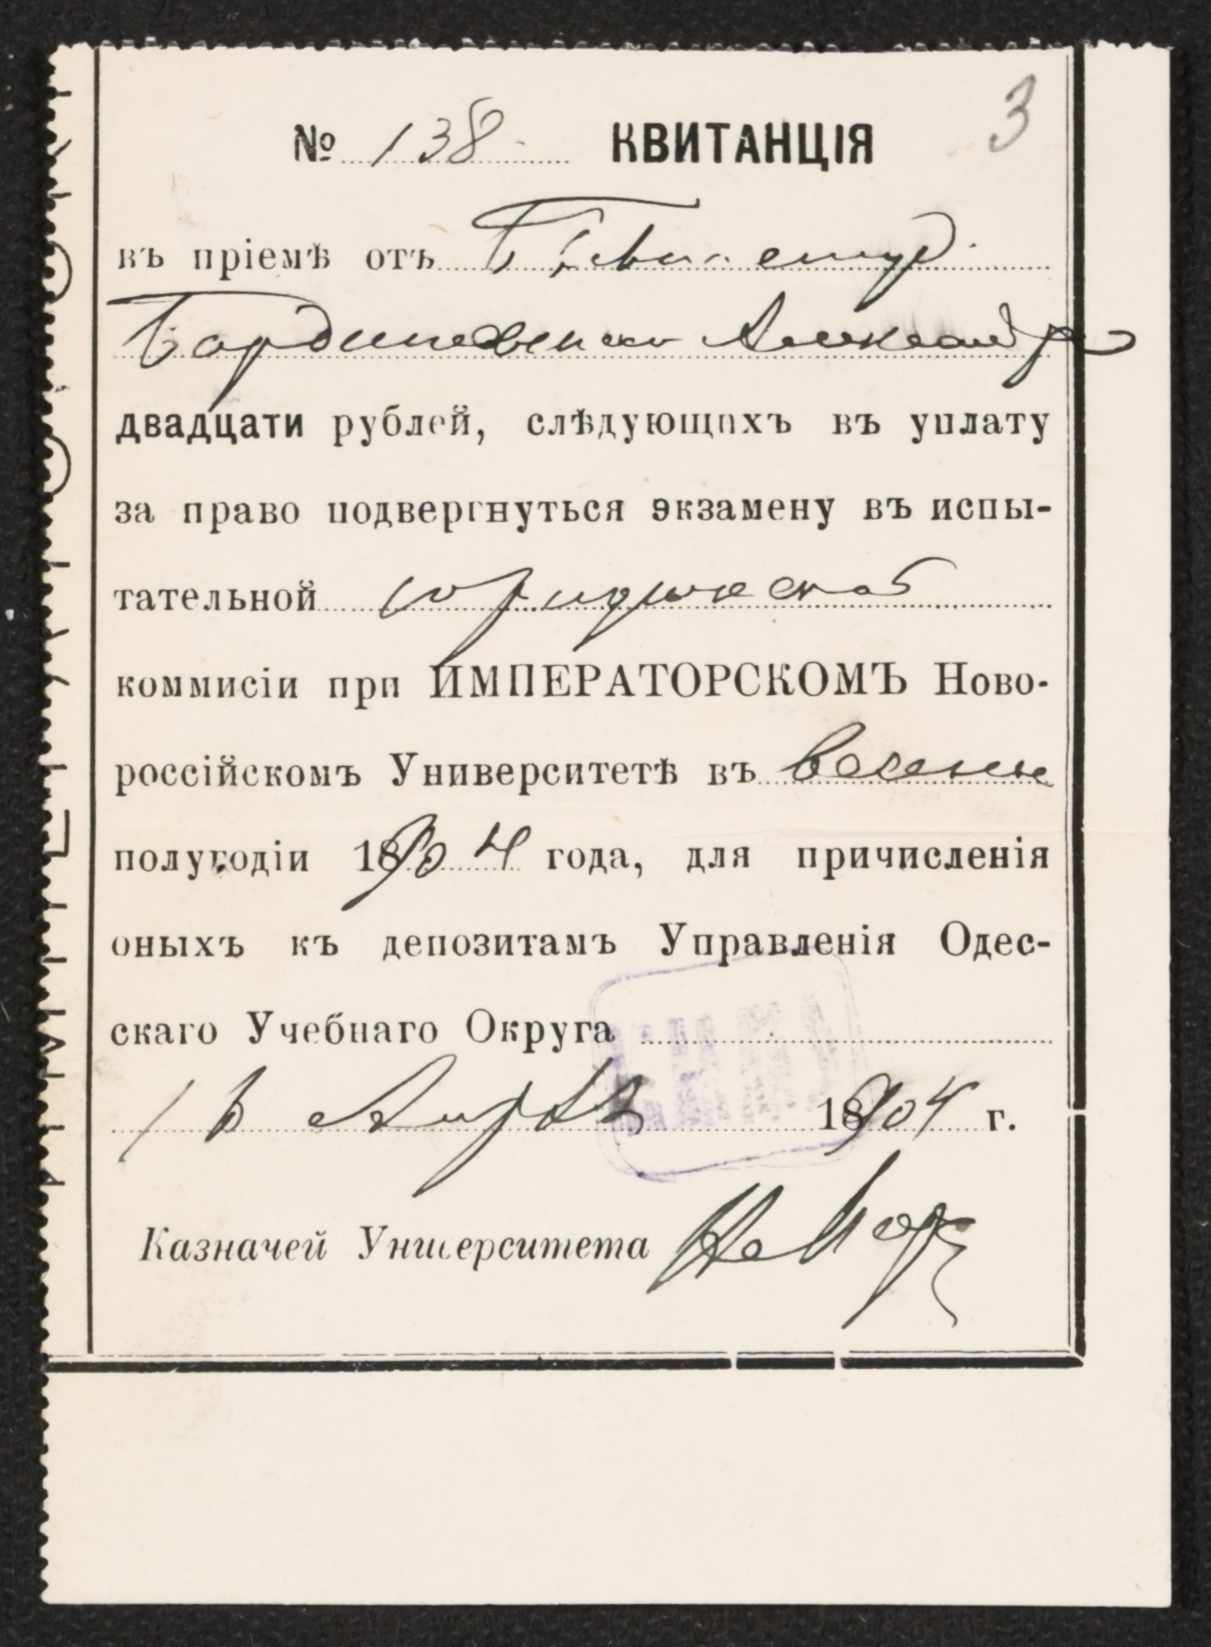 3
№ 138 КВИТАНЦІЯ
въ пріемѣ отъ
Александра
двадцати рублей, слѣдующихъ въ уплату
за право подвергнуться экзамену въ испы-
тательной юридической
коммисіи при ИМПЕРАТОРСКОМЪ Ново-
россійскомъ Университетѣ въ весенн
полугодіи 1904 года, для причисленія
оныхъ къ депозитамъ Управленія Одес-
скаго Учебнаго Округа
Апрѣля 1904 г.
Казначей Университета